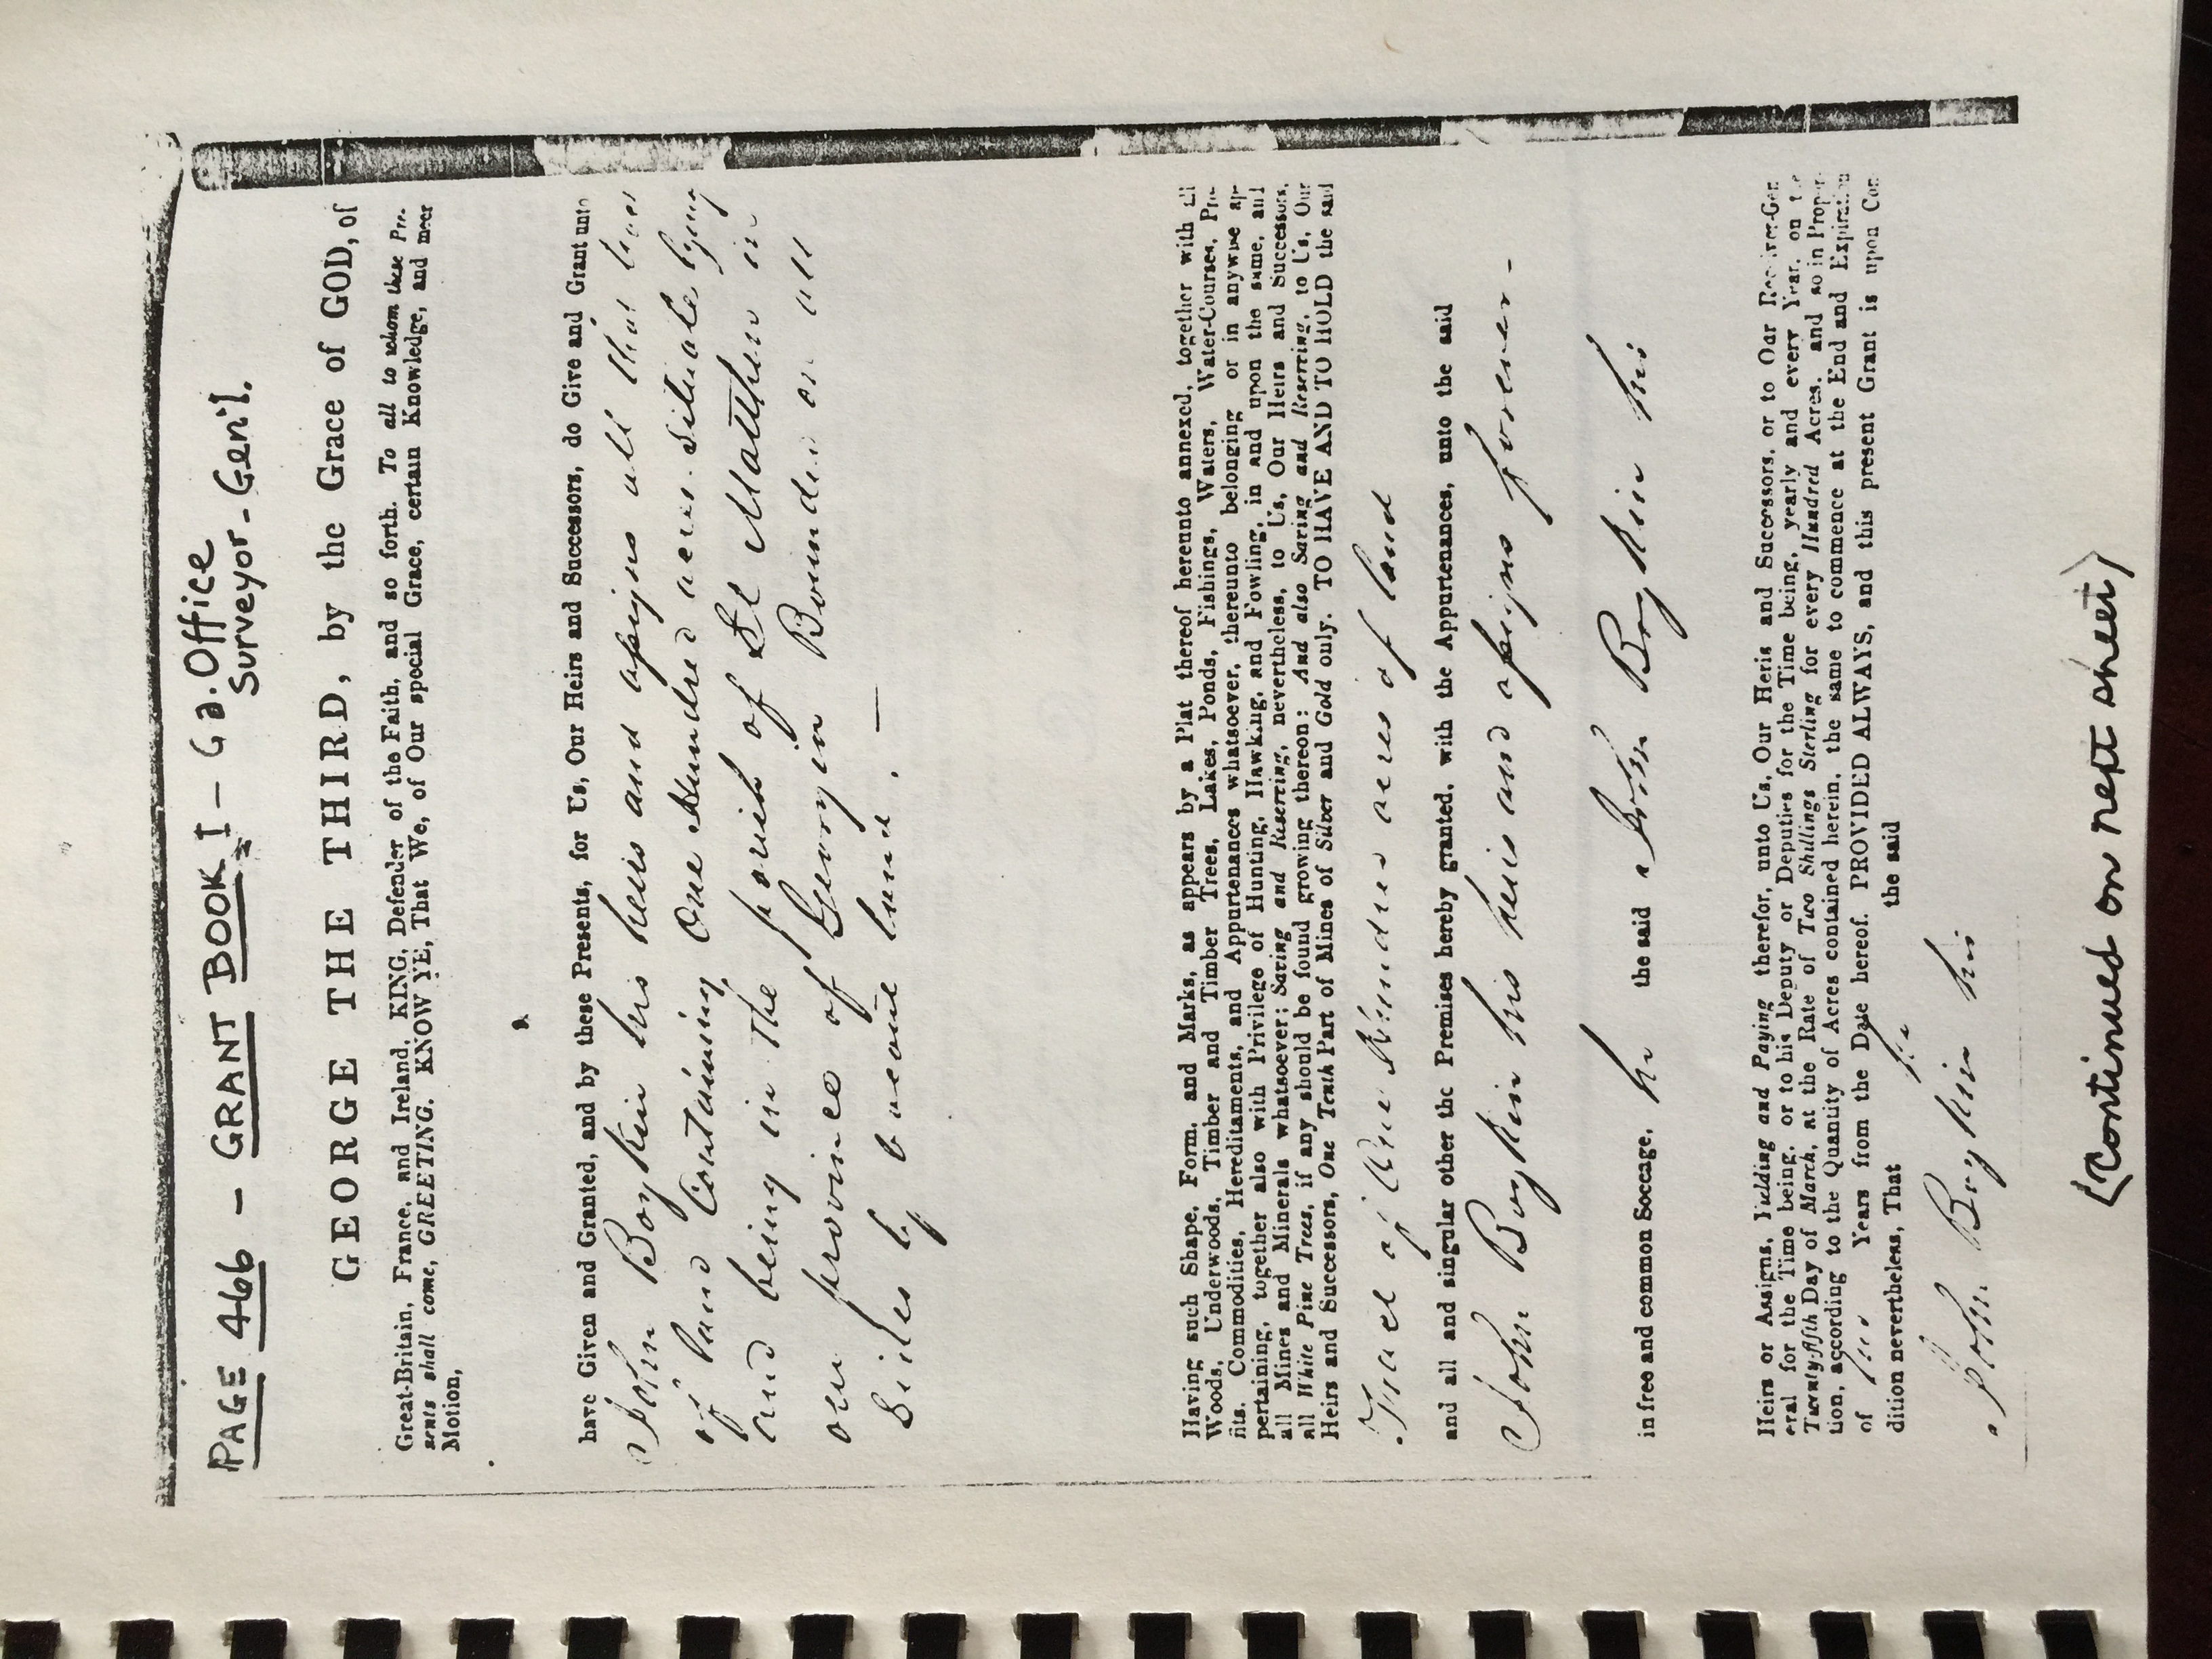 PAGE 466 - GRANT BOOK I - Ga. Office
Surveyor-Gen'l.
GEORGE THE THIRD, by the Grace of GOD, of
Great-Britain, France, and Ireland, KING, Defender of the Faith, and so forth. To all to whom these Pre-
sents shall come, GREETING. KNOW YE, That We, of Our special Grace, certain Knowledge, and meer
Motion,
have Given and Granted, and by these Presents, for Us, Our Heirs and Successors, do Give and Grant unto
John Boykin his heirs and assigns all that
of land Containing One Hundred acres situate lying
and being in the parish of St Matthew in
our province of Georgia Bounded on all
Sides by vacant land. —
Having such Shape, Form, and Marks, as appears by a Plat thereof hereunto annexed, together with all
Woods, Underwoods, Timber and Timber Trees, Lakes, Ponds, Fishings, Waters, Water-Courses, Pro-
fits, Commodities, Hereditaments, and Appurtenances whatsoever, thereunto belonging or in anywise ap-
pertaining, together also with Privilege of Hunting, Hawking, and Fowling, in and upon the same, and
all Mines and Minerals whatsoever; Saving and Reserving, nevertheless, to Us, Our Heirs and Successors,
all White Pine Trees, if any should be found growing thereon: And also Saving and Reserving, to Us, Our
Heirs and Successors, One Tenth Part of Mines of Silver and Gold only. TO HAVE AND TO HOLD the said
Tract of One Hundred acres of land
and all and singular other the Premises hereby granted, with the Appurtenances, unto the said
John Boykin his heirs and assigns forever -
in free and common Soccage, he the said John Boykin his
Heirs or Assigns, Yielding and Paying therefor, unto Us, Our Heris and Successors, or to Our Receiver-Gen
eral for the Time being, or to his Deputy or Deputies for the Time being, yearly and every Year, on the
Twenty-fifth Day of March, at the Rate of Two Shillings Sterling for every Hundred Acres, and so in Propor-
tion, according to the Quantity of Acres contained herein, the same to commence at the End and Expiration
of Years from the Date hereof. PROVIDED ALWAYS, and this present Grant is upon Con
dition nevertheless, That he the said
John Boykin his
(Continued on next sheet)